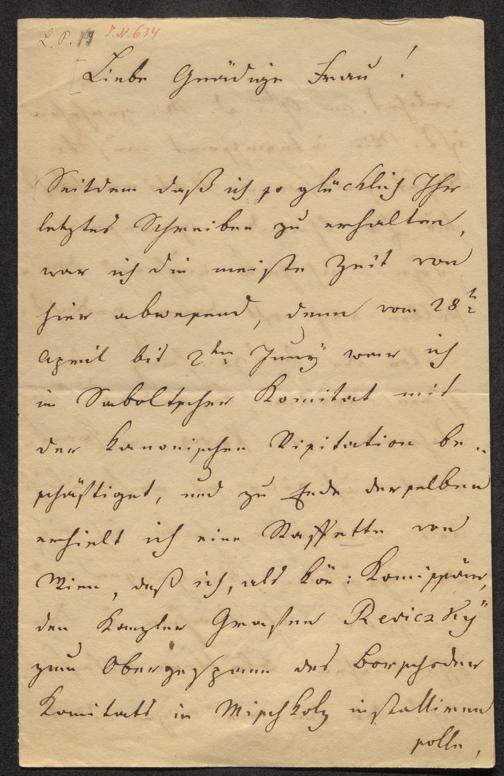 L. P. 19 I.N. 634
Liebe Gnädige Frau!
Seitdem daß ich so glücklich Ihr
letztes Schreiben zu erhalten,
war ich die meiste Zeit von
hier abwesend, denn vom 28t
April bis 2ten Juny war ich
im Saboltscher Komitat mit
der kanonischen Visitation be-
schäftiget, und zu Ende derselben
erhielt ich eine Staffette von
Wien, daß ich, als kön: Komissär,
den Kanzler Grafen Reviczky
zum Obergespann des Borschoder
Komitats in Mischkolz installiren
solle,